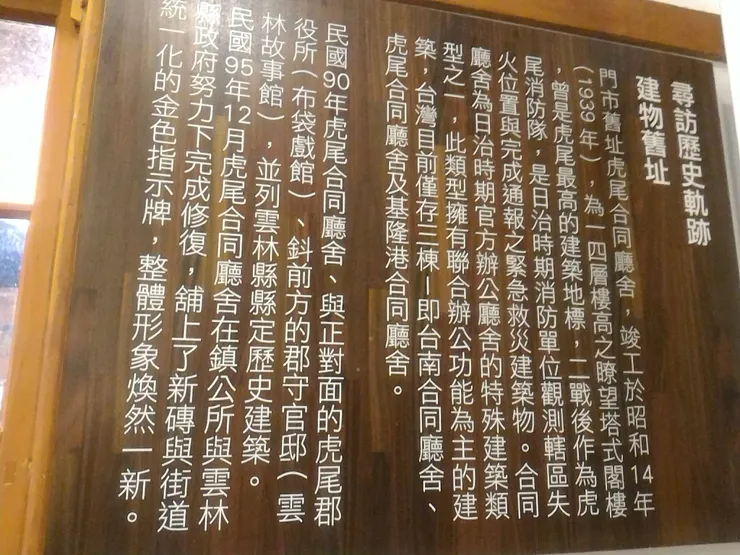 尋訪歷史軌跡
建物舊址
門市舊址虎尾合同廳舍，竣工於昭和14年
（1939年），為一四層樓高之瞭望塔式閣樓
，曾是虎尾最高的建築地標，二戰後作為虎
尾消防隊，是日治時期消防單位觀測轄區失
火位置與完成通報之緊急救災建築物。合同
廳舍為日治時期官方辦公廳舍的特殊建築類
型之一，此類型擁有聯合辦公功能為主的建
築，台灣目前僅存三棟－即台南合同廳舍、
虎尾合同廳舍及基隆港合同廳舍。
民國90年虎尾合同廳舍、與正對面的虎尾郡
役所（布袋戲館）、斜前方的郡守官邸（雲
林故事館），並列雲林縣縣定歷史建築。
民國95年12月虎尾合同廳舍在鎮公所與雲林
縣政府努力下完成修復，舖上了新磚與街道
統一化的金色指示牌，整體形象煥然一新。